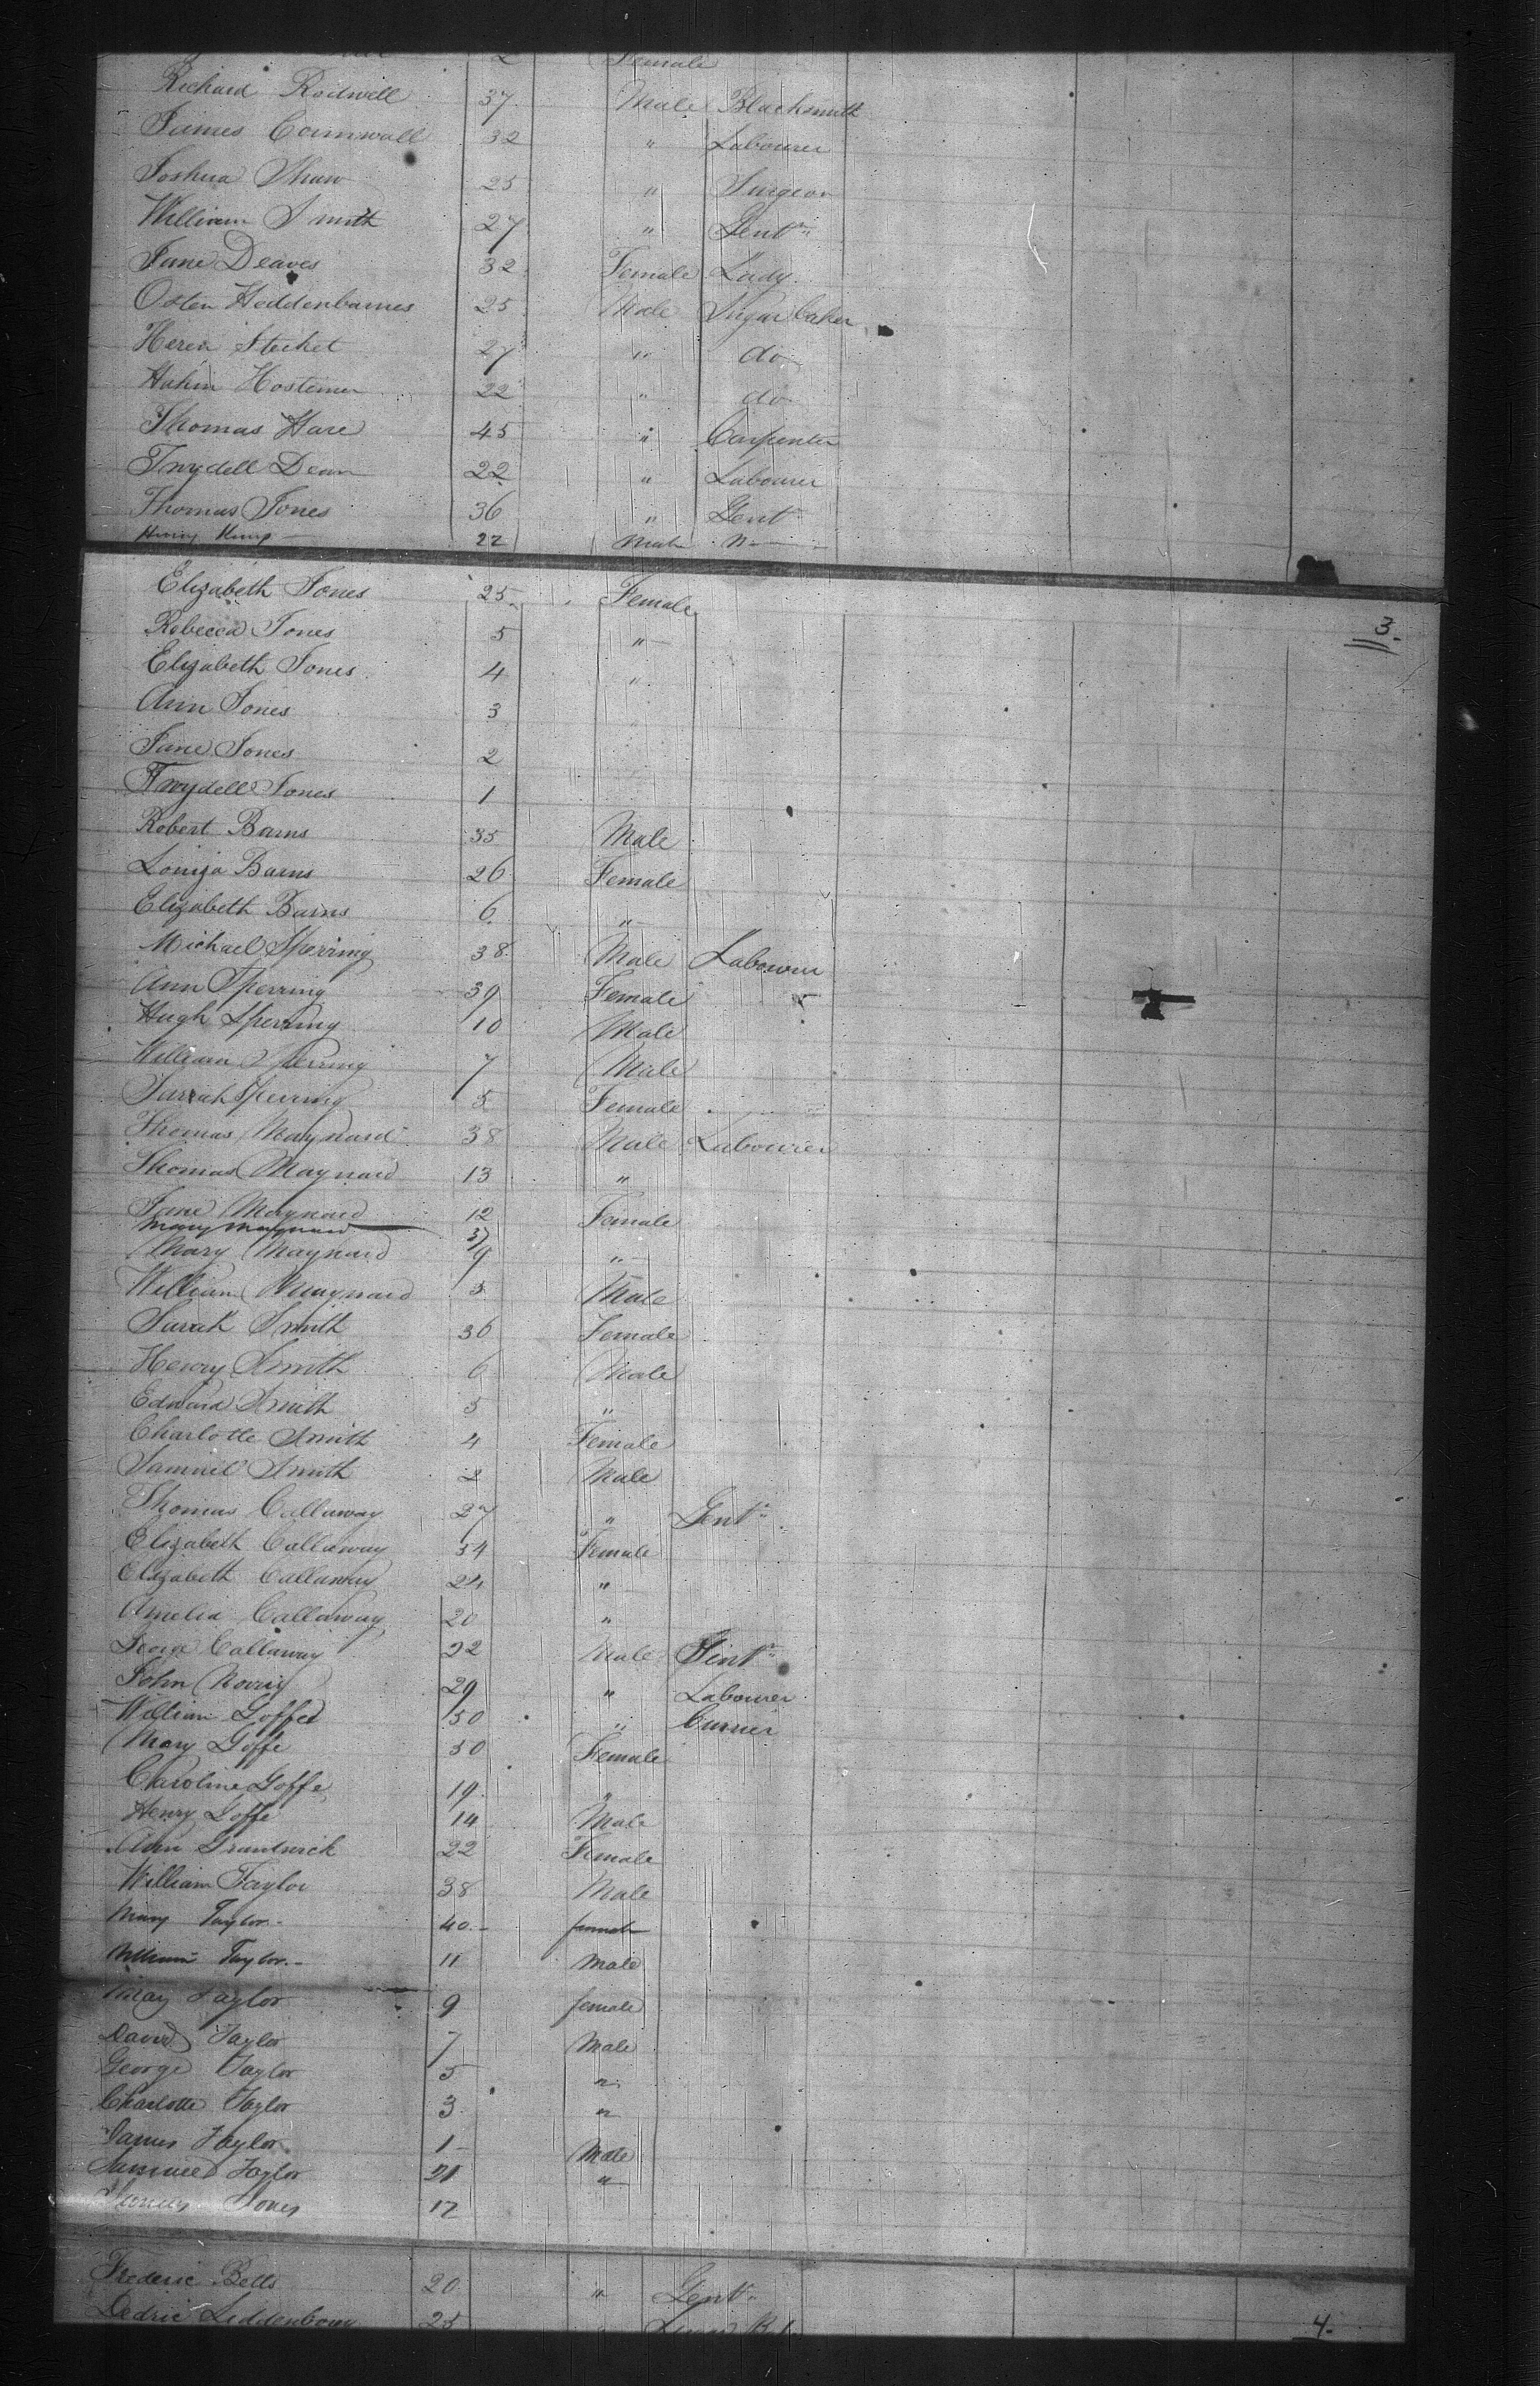 2 Female
Richard Rodwell 37 Male Blacksmith
James Cornwall 32 " Labourer
Joshua Shaw 25 " Surgeon
William Smith 27 " Gentn
Jane Deaves 32 Female Lady
Osten Heddenbarnes 25 Male Sugar baker
Stechet 27 " do
Hahin Hosteimer 22 " do
Thomas Hare 45 " Carpenter
Twydell Dean 22 " Labourer
Thomas Jones 36 " Gent
22 Male
Elizabeth Jones 25 Female
3.
Rebecca Jones 5 "
Elizabeth Jones 4 "
Ann Jones 3
Jane Jones 2
Twydell Jones 1
Robert Barns 35 Male
Louiza Barns 26 Female
Elizabeth Barns 6 "
Michael Sperring 38 Male Labourer
Ann Sperring 39 Female
Hugh Sperring 10 Male
William Sperring 7 Male
Sarrah Sperring 5 Female
Thomas Maynard 38 Male Labourer
Thomas Maynard 13 "
Jane Maynard 12 Female
Mary Maynard 37
Mary Maynard 9 "
William Maynard 5 Male
Sarah Smith 36 Female
Henry Smith 6 Male
Edward Smith 5 "
Charlotte Smith 4 Female
Samuel Smith 2 Male
Thomas Callaway 27 " Gentn
Elizabeth Callaway 54 Female
Elizabeth Callaway 24 "
Amelia Callaway 20 "
George Callaway 22 Male Gentn
John Norris 29 " Labourer
William Goffe 50 " Currier
Mary Goffe 50 Female
Caroline Goffe 19 "
Henry Goffe 14 Male
Ann 22 Female
William Taylor 38 Male
Mary Taylor 40 female
William Taylor 11 Male
May Taylor 9 female
David Taylor 7 Male
George Taylor 5 "
Charlotte Taylor 3 "
James Taylor 1 Male
Samuel Taylor 21 "
Jones 17
Frederic Bells 20 " Gentn
Dedric Leddenbourg 25
4.